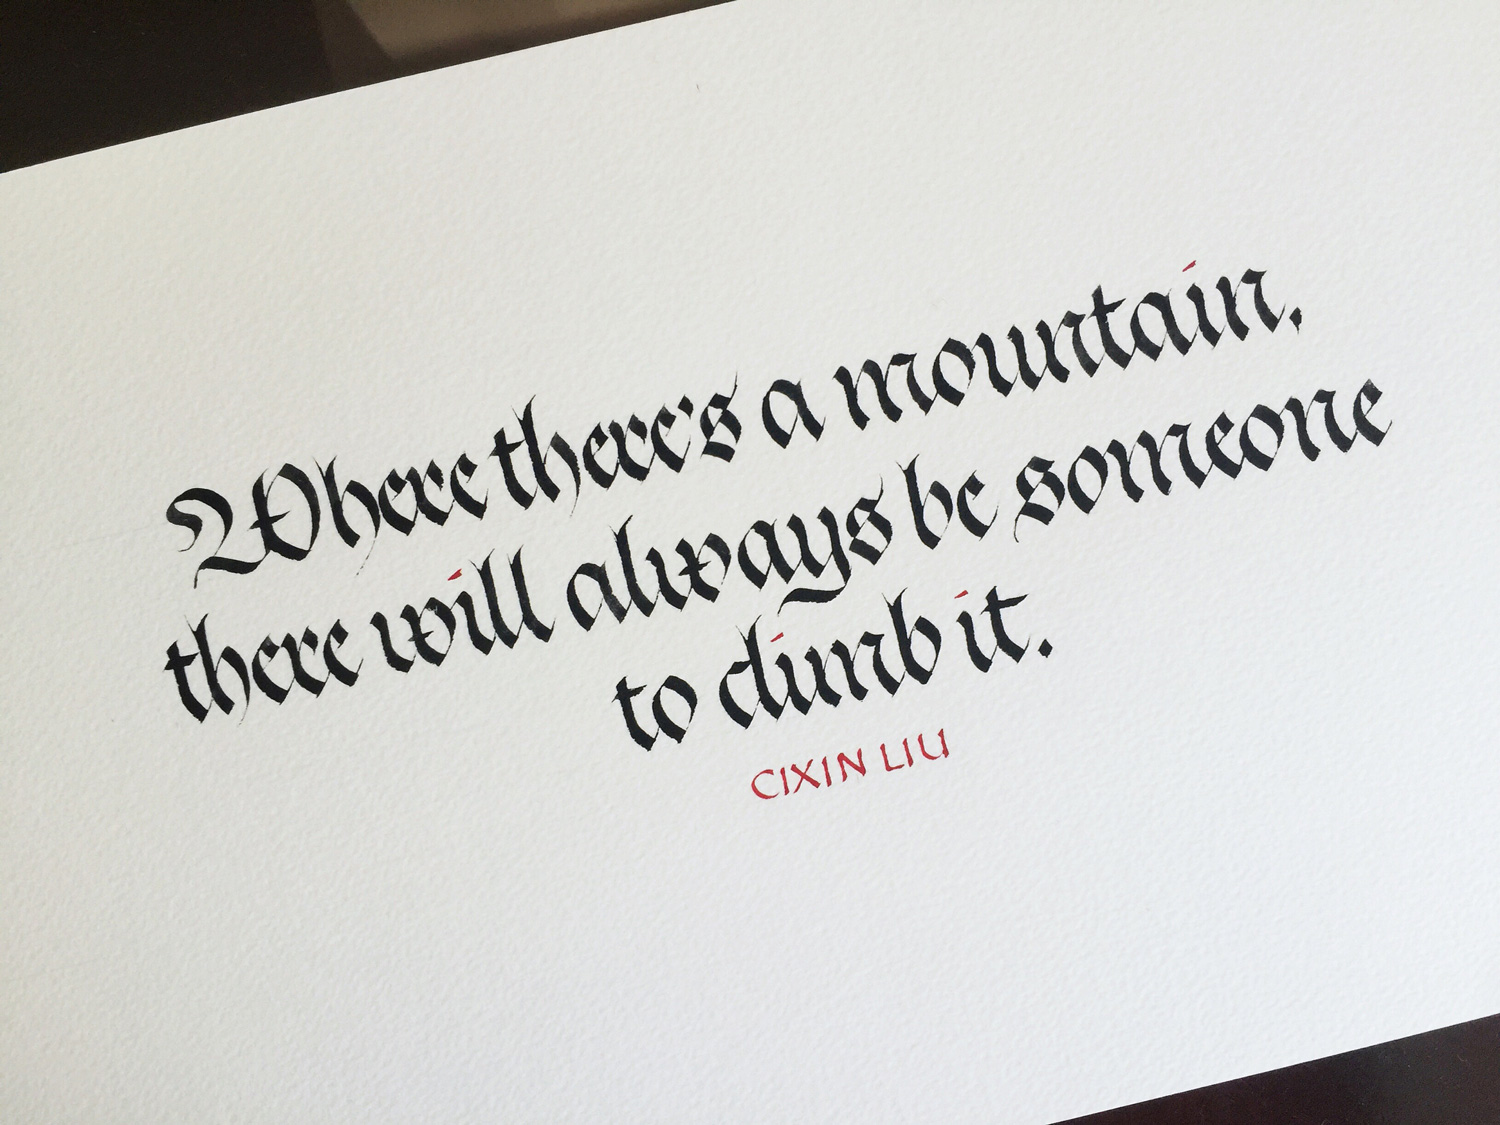 Where there's a mountain,
there will always be someone
to climb it.
CIXIN LIU